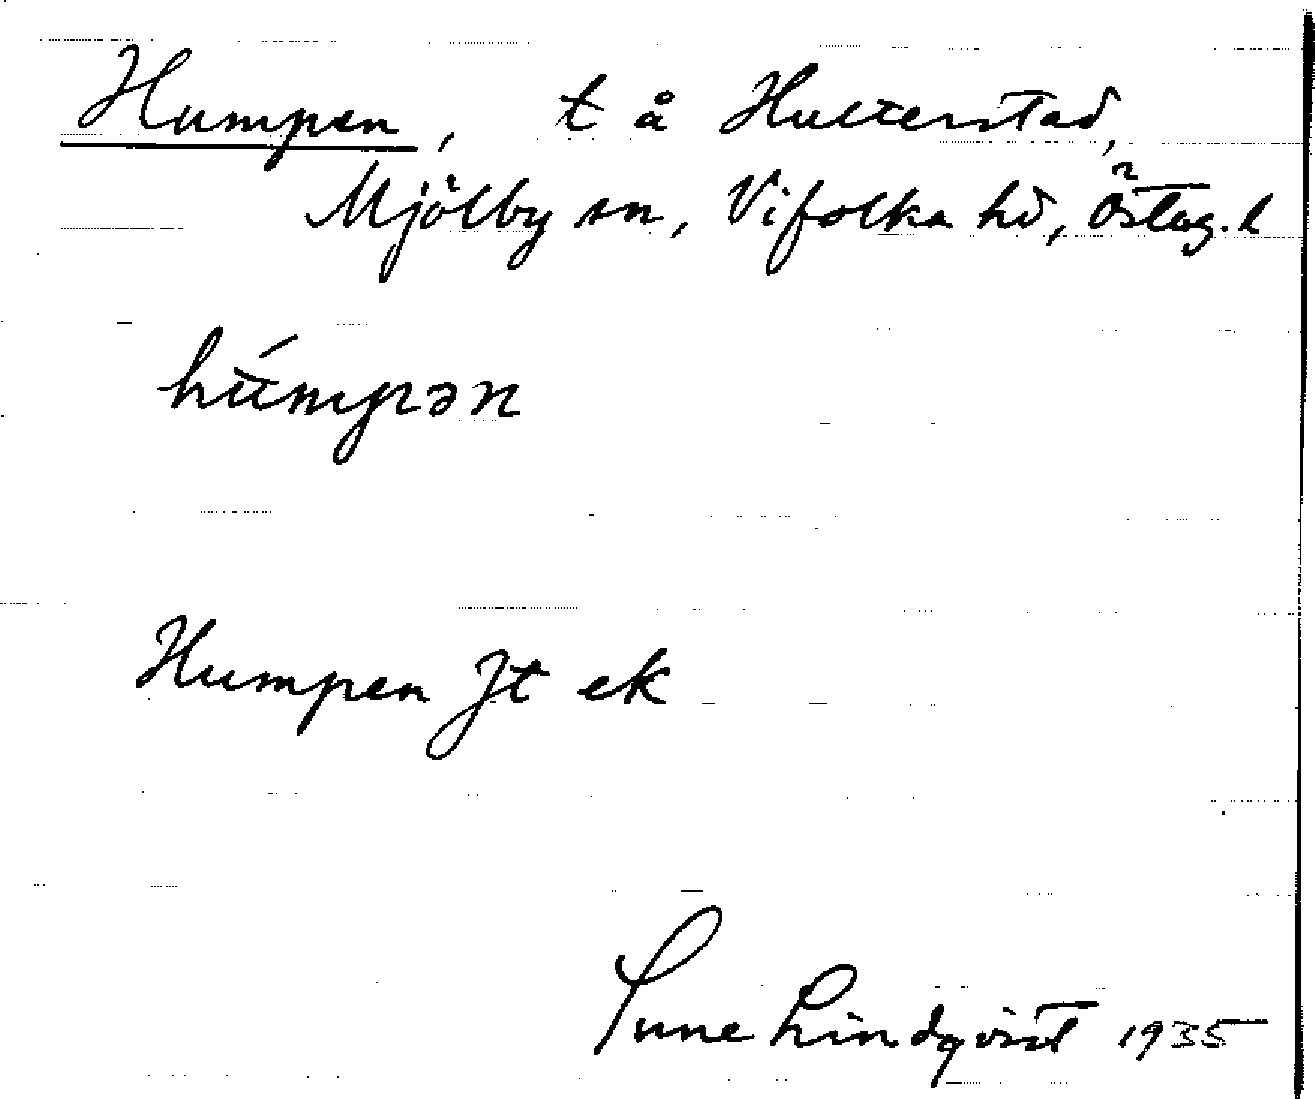 Humpen, t å Hulterstad,
Mjölby sn, Vifolka hd, Östag. l
húmpən
Humpen Jt ek
Sune Lindqvist 1935